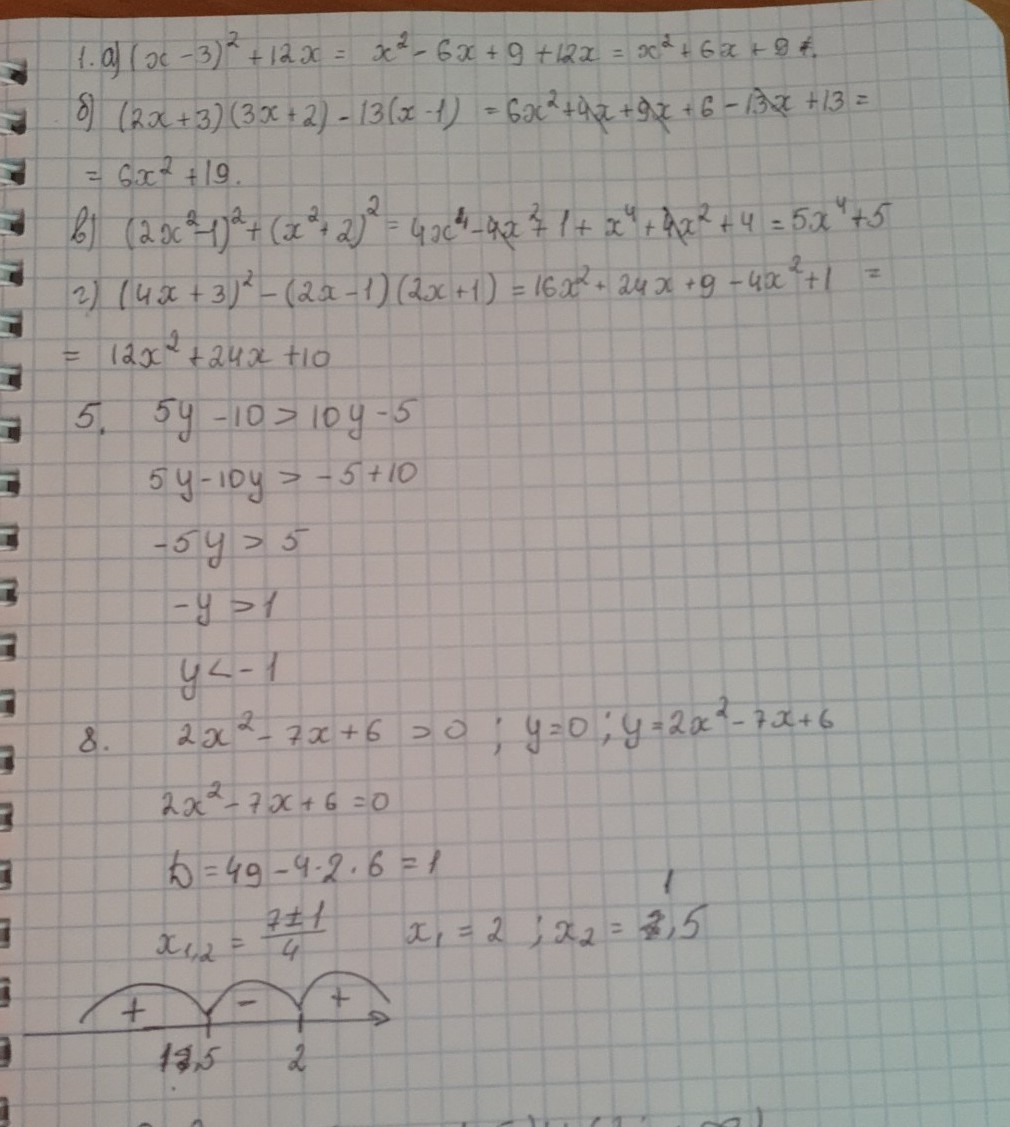 1. а) (x-3)² + 12x = x² - 6x + 9 + 12x = x² + 6x + 9
б) (2x+3)(3x+2) - 13(x-1) = 6x² + 4x + 9x + 6 - 13x + 13 =
= 6x² + 19.
в) (2x²-1)² + (x²+2)² = 4x⁴ - 4x² + 1 + x⁴ + 4x² + 4 = 5x⁴ + 5
г) (4x+3)² - (2x-1)(2x+1) = 16x² + 24x + 9 - 4x² + 1 =
= 12x² + 24x + 10
5. 5y - 10 > 10y - 5
5y - 10y > -5 + 10
-5y > 5
-y > 1
y < -1
8. 2x² - 7x + 6 > 0 ; y = 0 ; y = 2x² - 7x + 6
2x² - 7x + 6 = 0
D = 49 - 4·2·6 = 1
x₁,₂ = (7±1)/4 x₁ = 2 ; x₂ = 1,5
+ - +
1,5 2